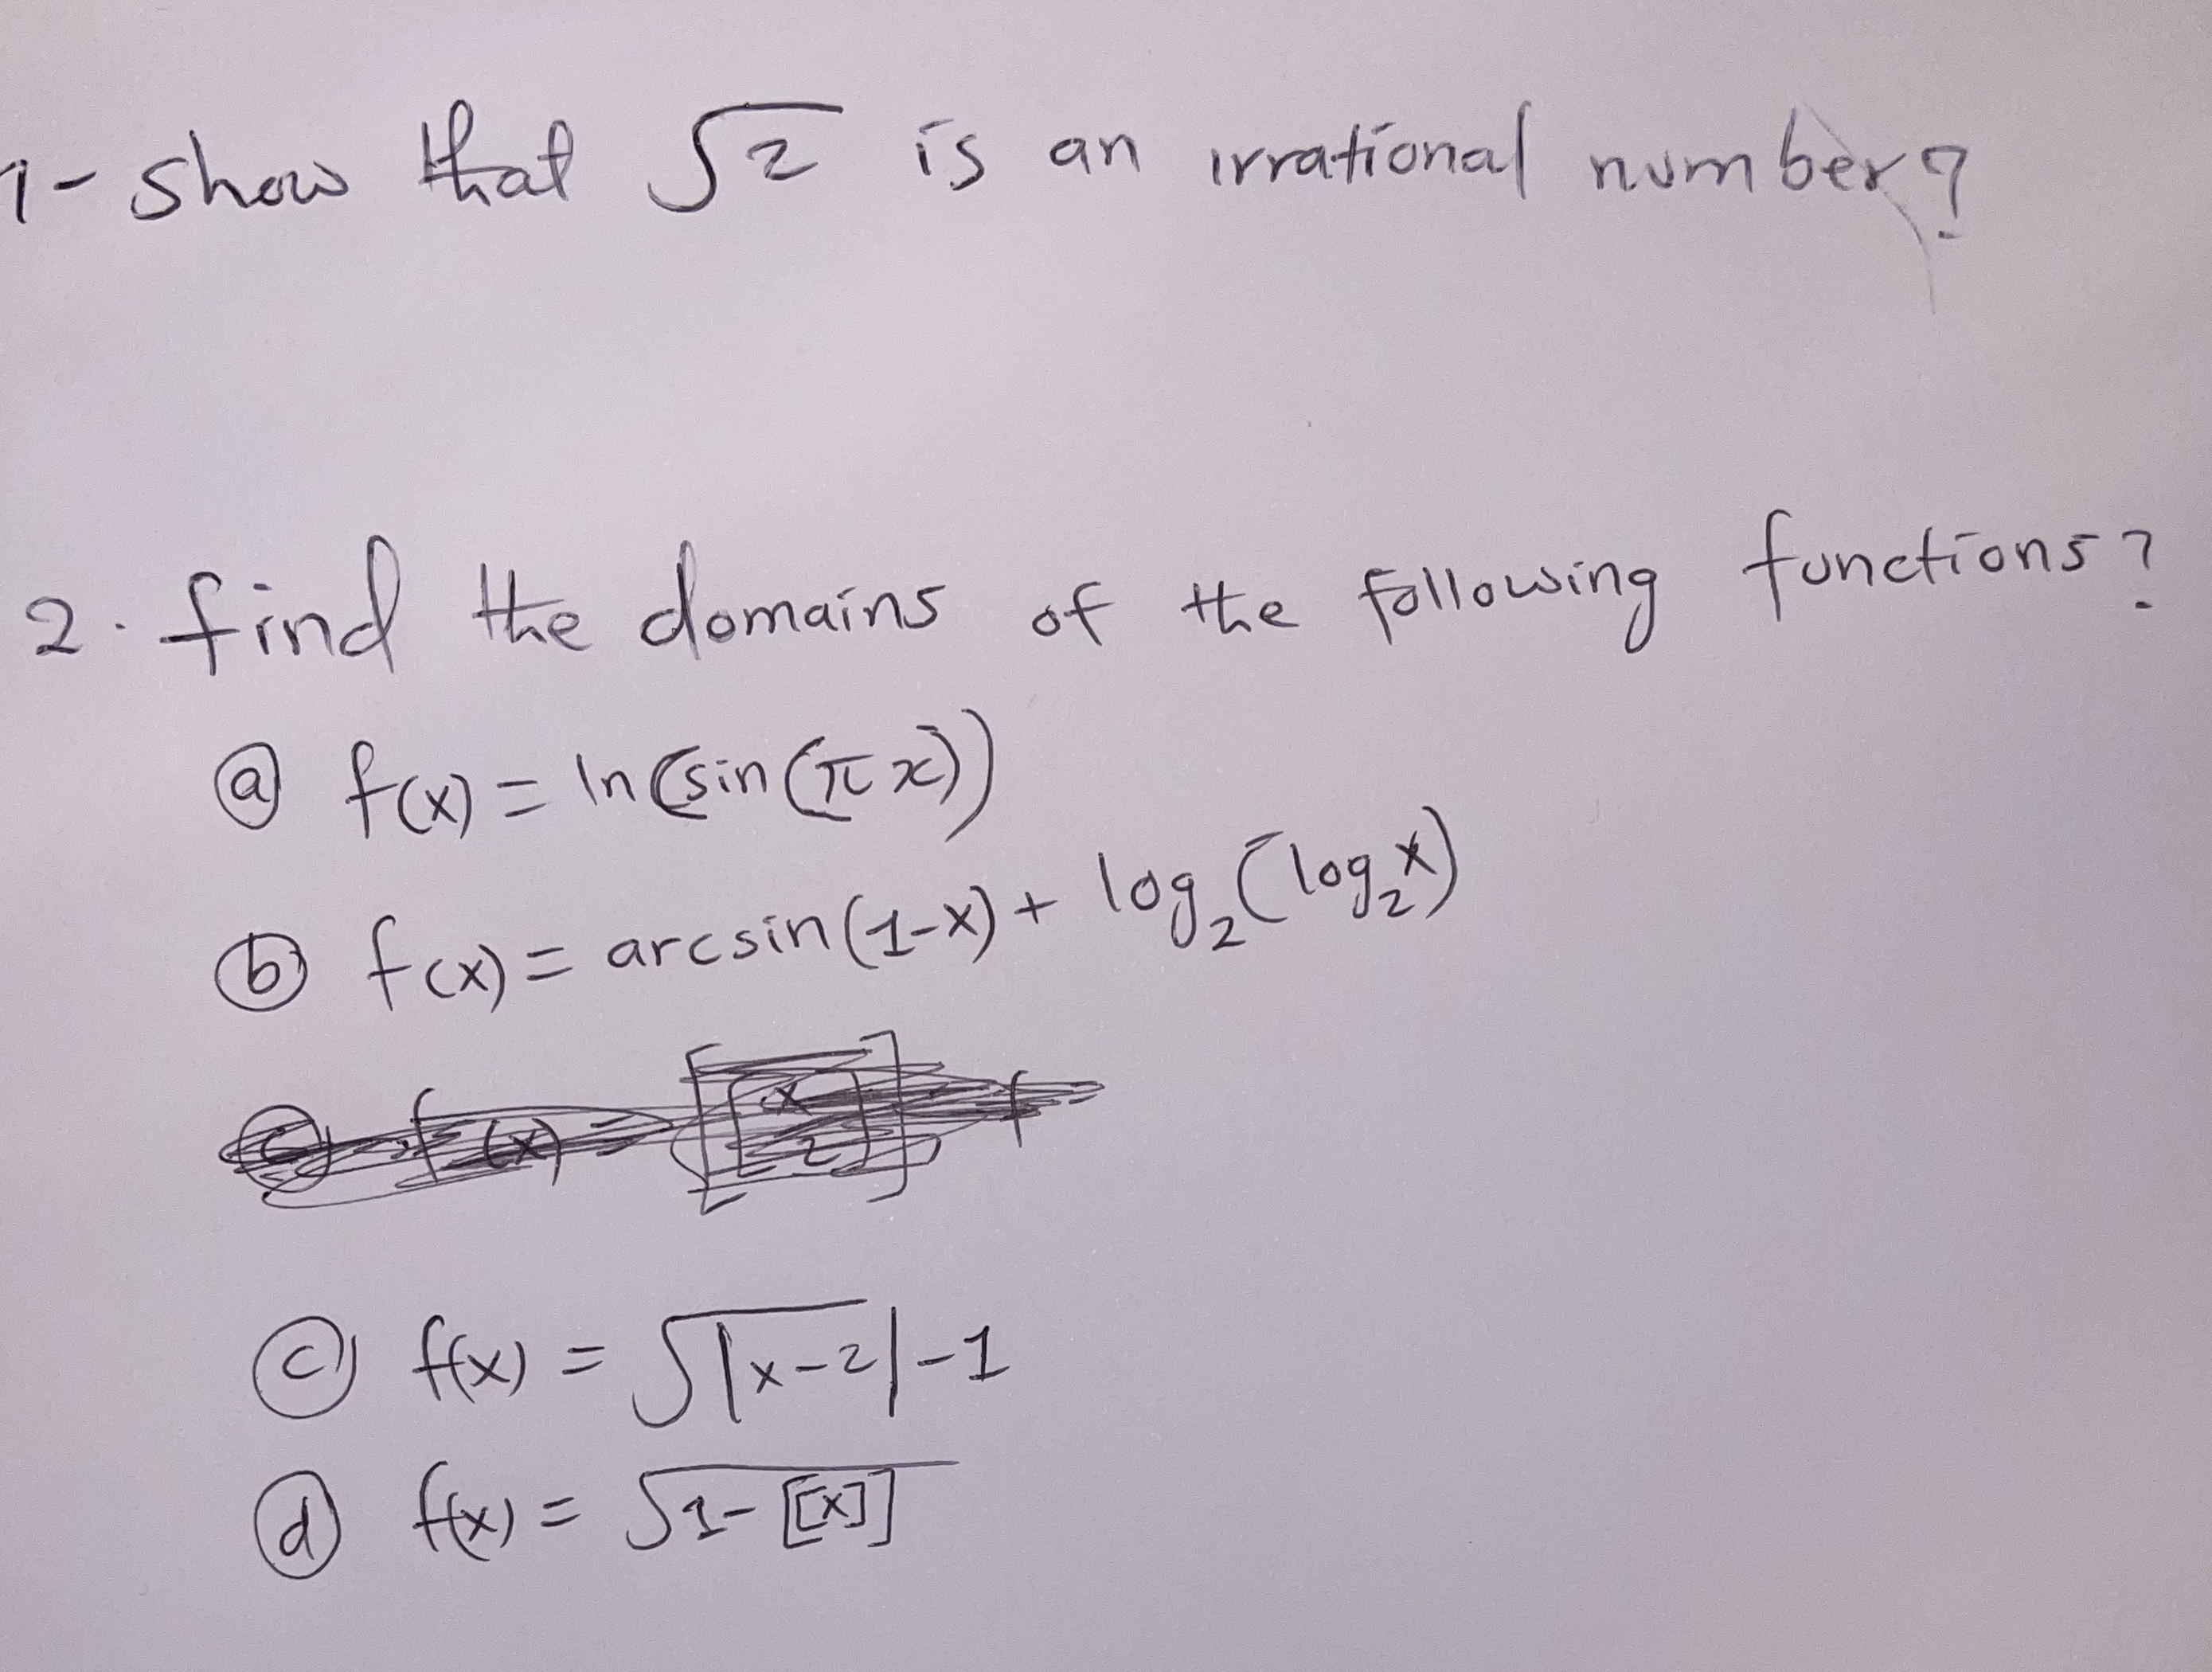 1- show that √2 is an irrational number?
2. find the domains of the following functions?
ⓐ f(x) = ln(sin(πx))
ⓑ f(x) = arcsin(1-x) + log₂(log₂x)
ⓒ f(x) = √|x-2|-1
ⓓ f(x) = √1-[[x]]